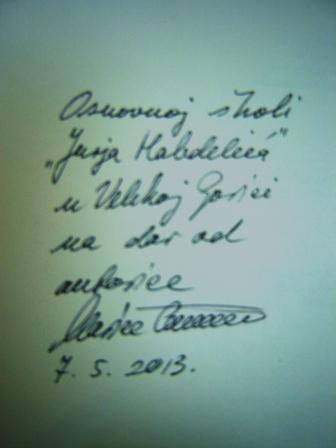 Osnovnoj školi
"Jurja Habdelića"
u Velikoj Gorici
na dar od
autorice
7. 5. 2013.